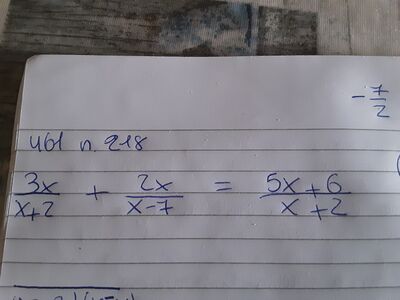 -7/2
461 n. 218
3x/x+2 + 2x/x-7 = 5x+6/x+2